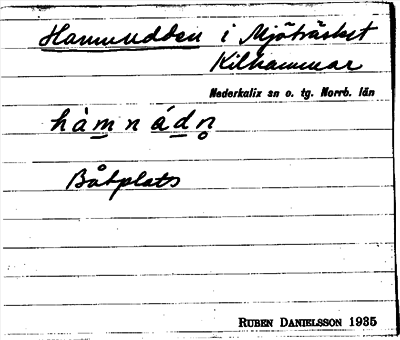 Hamnudden i Mjöträsket
Kilhammar
Nederkalix sn o. tg. Norrb. län
hàmnádn̥
Båtplats
RUBEN DANIELSSON 1935